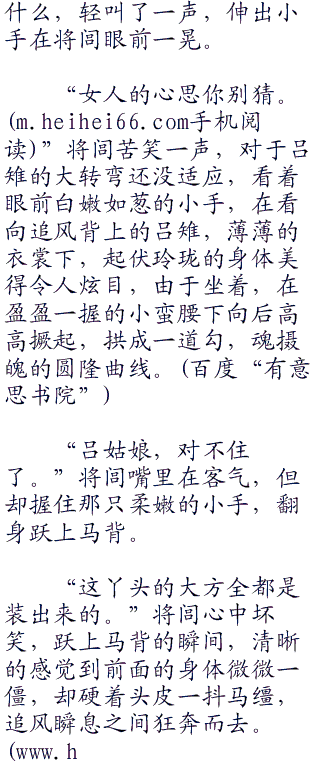 什么，轻叫了一声，伸出小
手在将闾眼前一晃。
“女人的心思你别猜。
(m.heihei66.com手机阅
读)”将闾苦笑一声，对于吕
雉的大转弯还没适应，看着
眼前白嫩如葱的小手，在看
向追风背上的吕雉，薄薄的
衣裳下，起伏玲珑的身体美
得令人炫目，由于坐着，在
盈盈一握的小蛮腰下向后高
高撅起，拱成一道勾，魂摄
魄的圆隆曲线。(百度“有意
思书院”)
“吕姑娘，对不住
了。”将闾嘴里在客气，但
却握住那只柔嫩的小手，翻
身跃上马背。
“这丫头的大方全都是
装出来的。”将闾心中坏
笑，跃上马背的瞬间，清晰
的感觉到前面的身体微微一
僵，却硬着头皮一抖马缰，
追风瞬息之间狂奔而去。
(www.h